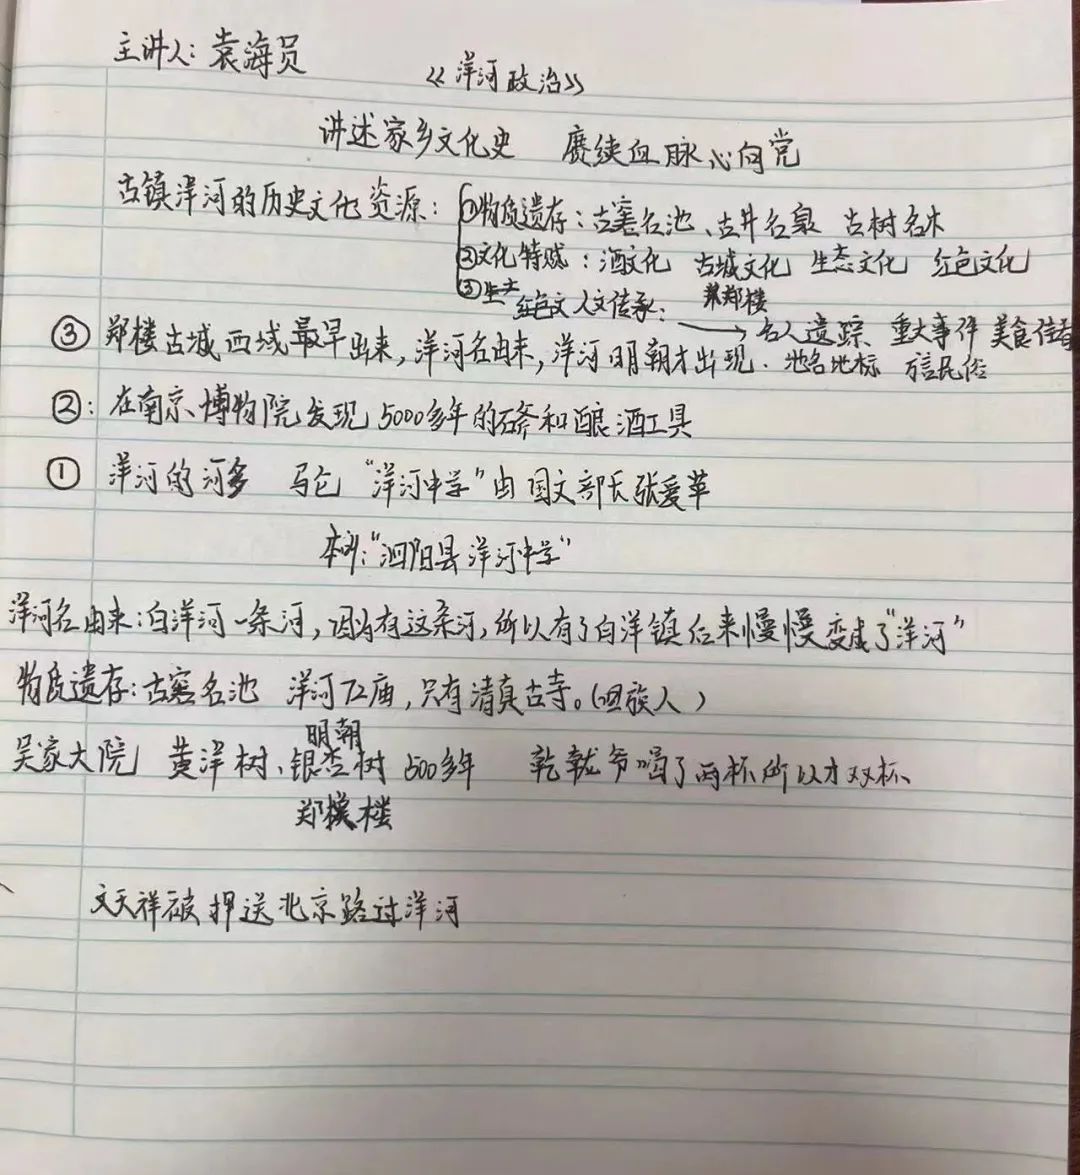 主讲人：袁海员
《洋河政治》
讲述家乡文化史 赓续血脉心向党
古镇洋河的历史文化资源：①物质遗存：古窖名池、古井名泉 古树名木
②文化特质：酒文化 古城文化 生态文化 红色文化
③人文传承：
郑楼
名人遗踪 重大事件 美食佳肴
③ 郑楼古城西域最早出来，洋河名由来，洋河明朝才出现. 地名地标 民俗
②：在南京博物院发现5000多年的石斧和酿酒工具
① 洋河的河多 “洋河中学”由国文部长张爱萍
“泗阳县洋河中学”
洋河名由来：白洋河一条河，因为有这条河，所以有了白洋镇后来慢慢变成了“洋河”
物质遗存：古窖名池 洋河72庙，只有清真古寺。（回族人）
明朝
吴家大院 黄洋树、银杏树 500多年 乾 爷喝了两杯所以才双杯、
郑 楼
文天祥被押送北京路过洋河